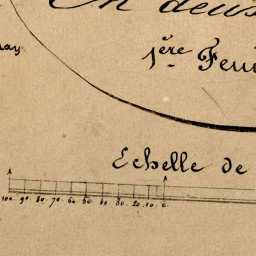 En deux
1ère Feui
nay
Echelle de
100. 90. 80. 70. 60. 50. 40. 30. 20. 10. 0.